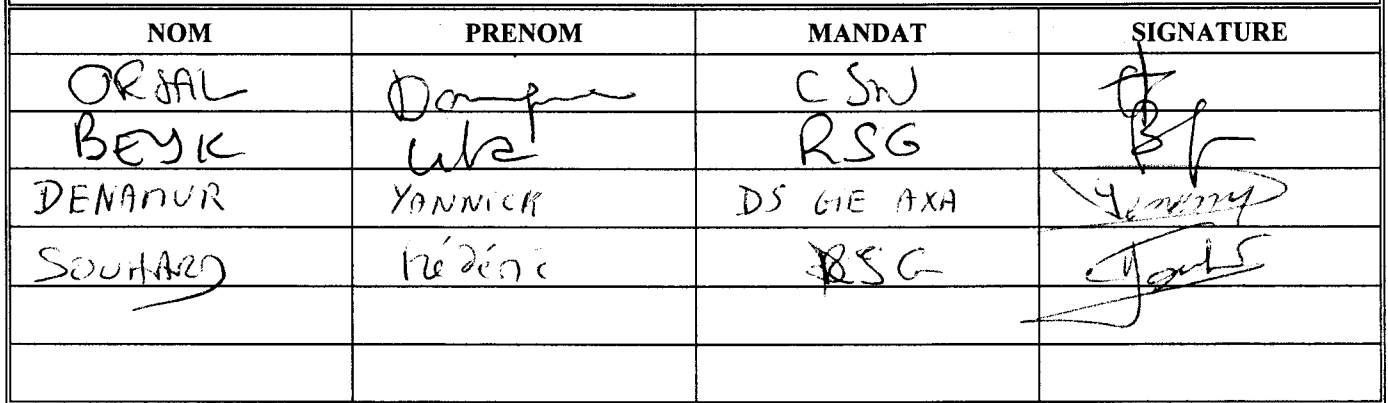 NOM PRENOM MANDAT SIGNATURE
ORSAL Dominique CSN
BEYK RSG
DENAMUR YANNICK DS GIE AXA
SOUHARD Frédéric RSG